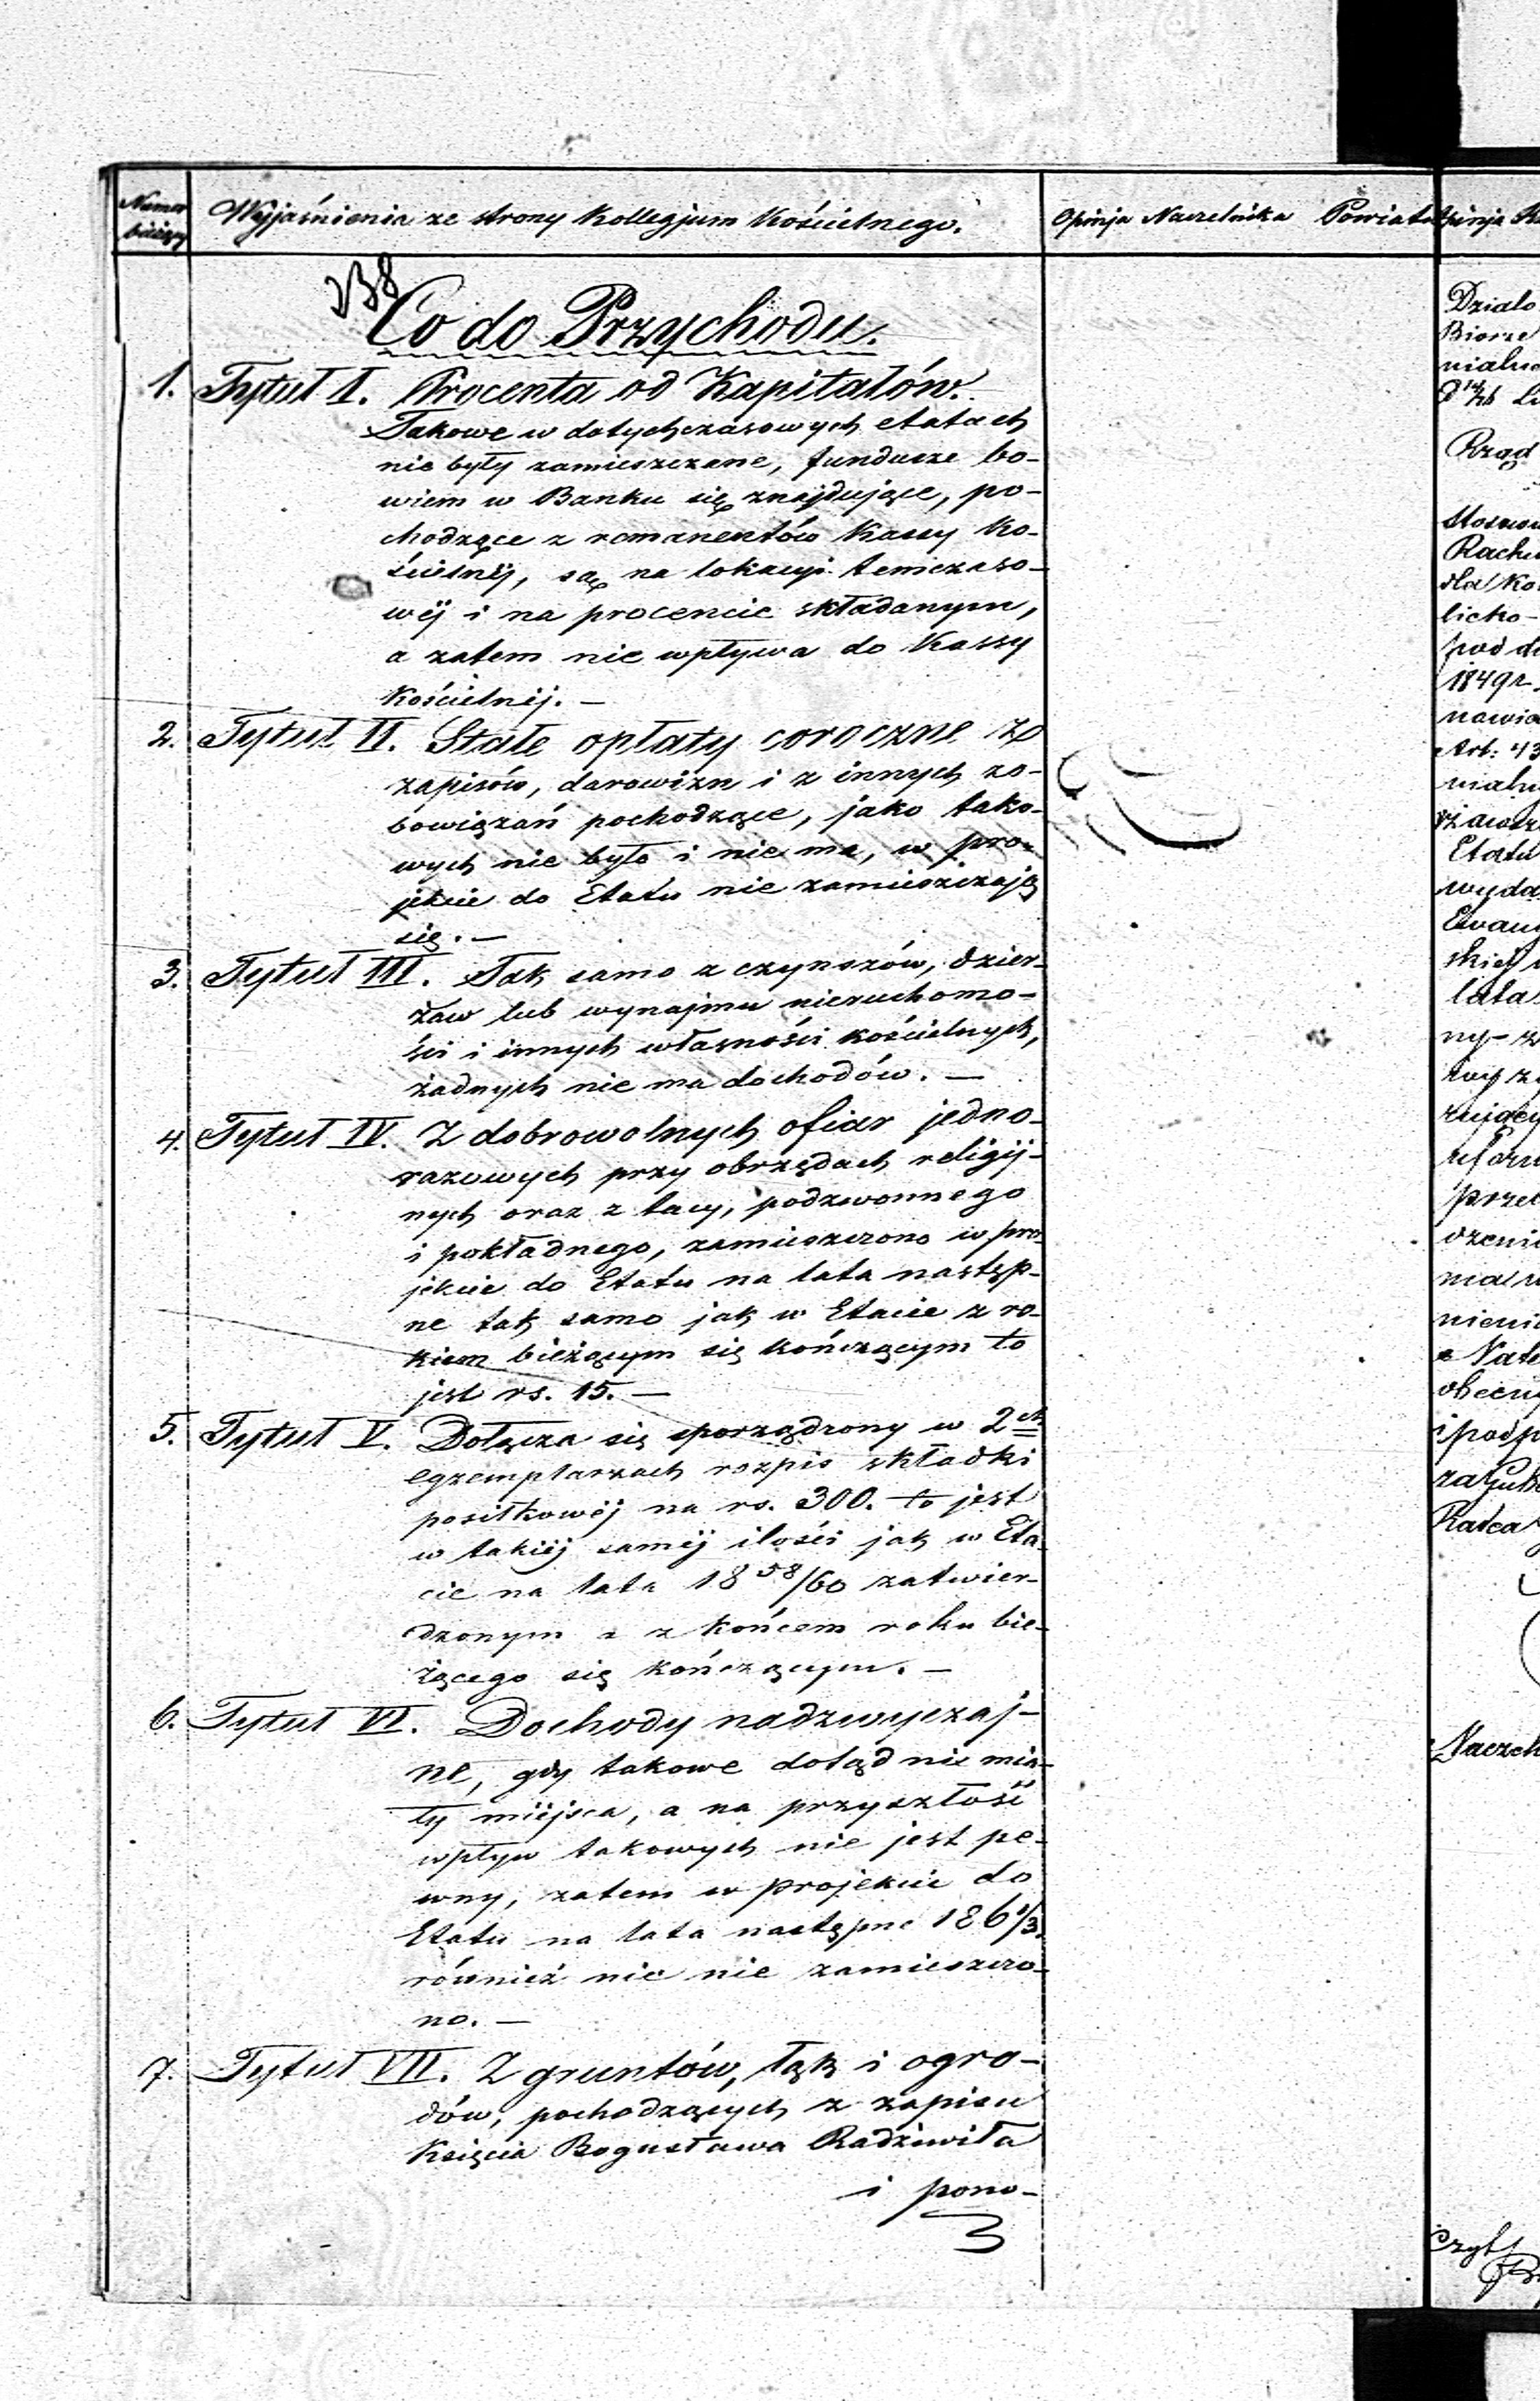 Numer bieżący
Wyjaśnienia ze strony Kollegjum Kościelnego.
Opinja Naczelnika Powiatu
238
Co do Przychodu.
1. Tytuł I. Procenta od Kapitałów.
Takowe w dotychczasowych etatach
nie były zamieszczane, fundusze bo-
wiem w Banku się znajdujące, po-
chodzące z remanentów Kassy Ko-
ścielnéj, są na lokacyi temczaso-
wéj i na procencie składanym,
a zatem nie wpływa do Kassy
Kościelnéj. —
2. Tytuł II. Stałe opłaty coroczne z
zapisów, darowizn i z innych zo-
bowiązań pochodzące, jako tako-
wych nie było i nie ma, w pro-
jekcie do Etatu nie zamieszczają
się. —
3. Tytuł III. Tak samo z czynszów, dzier-
żaw lub wynajmu nieruchomo-
ści i innych własności kościelnych,
żadnych nie ma dochodów. —
4. Tytuł IV. Z dobrowolnych ofiar jedno-
razowych przy obrzędach religij-
nych oraz z tacy, podzwonnego
i pokładnego, zamieszczono w pro-
jekcie do Etatu na lata następ-
ne tak samo jak w Etacie z ro-
kiem bieżącym się kończącym to
jest rs. 15. —
5. Tytuł V. Dołącza się sporządzony w 2ch
egzemplarzach rozpis składki
posiłkowéj na rs. 300. to jest
w takiéj saméj ilości jak w Eta-
cie na lata 1858/60 zatwier-
dzonym a z końcem roku bie-
żącego się kończącym. —
6. Tytuł VI. Dochody nadzwyczaj-
ne, gdy takowe dotąd nie mia-
ły miéjsca, a na przyszłość
wpływ takowych nie jest pe-
wny, zatem w projekcie do
Etatu na lata następne 1861/3
również nic nie zamieszczo-
no. —
7. Tytuł VII. Z gruntów, łąk i ogro-
dów, pochodzących z zapisu
Księcia Bogusława Radziwiła
i pono-
Działo
Biorze
Rząd
1849 r.
Art: 43
Etatu
wyda
lata
ny-
nieni
obecny
Radca
Naczel
Czyt